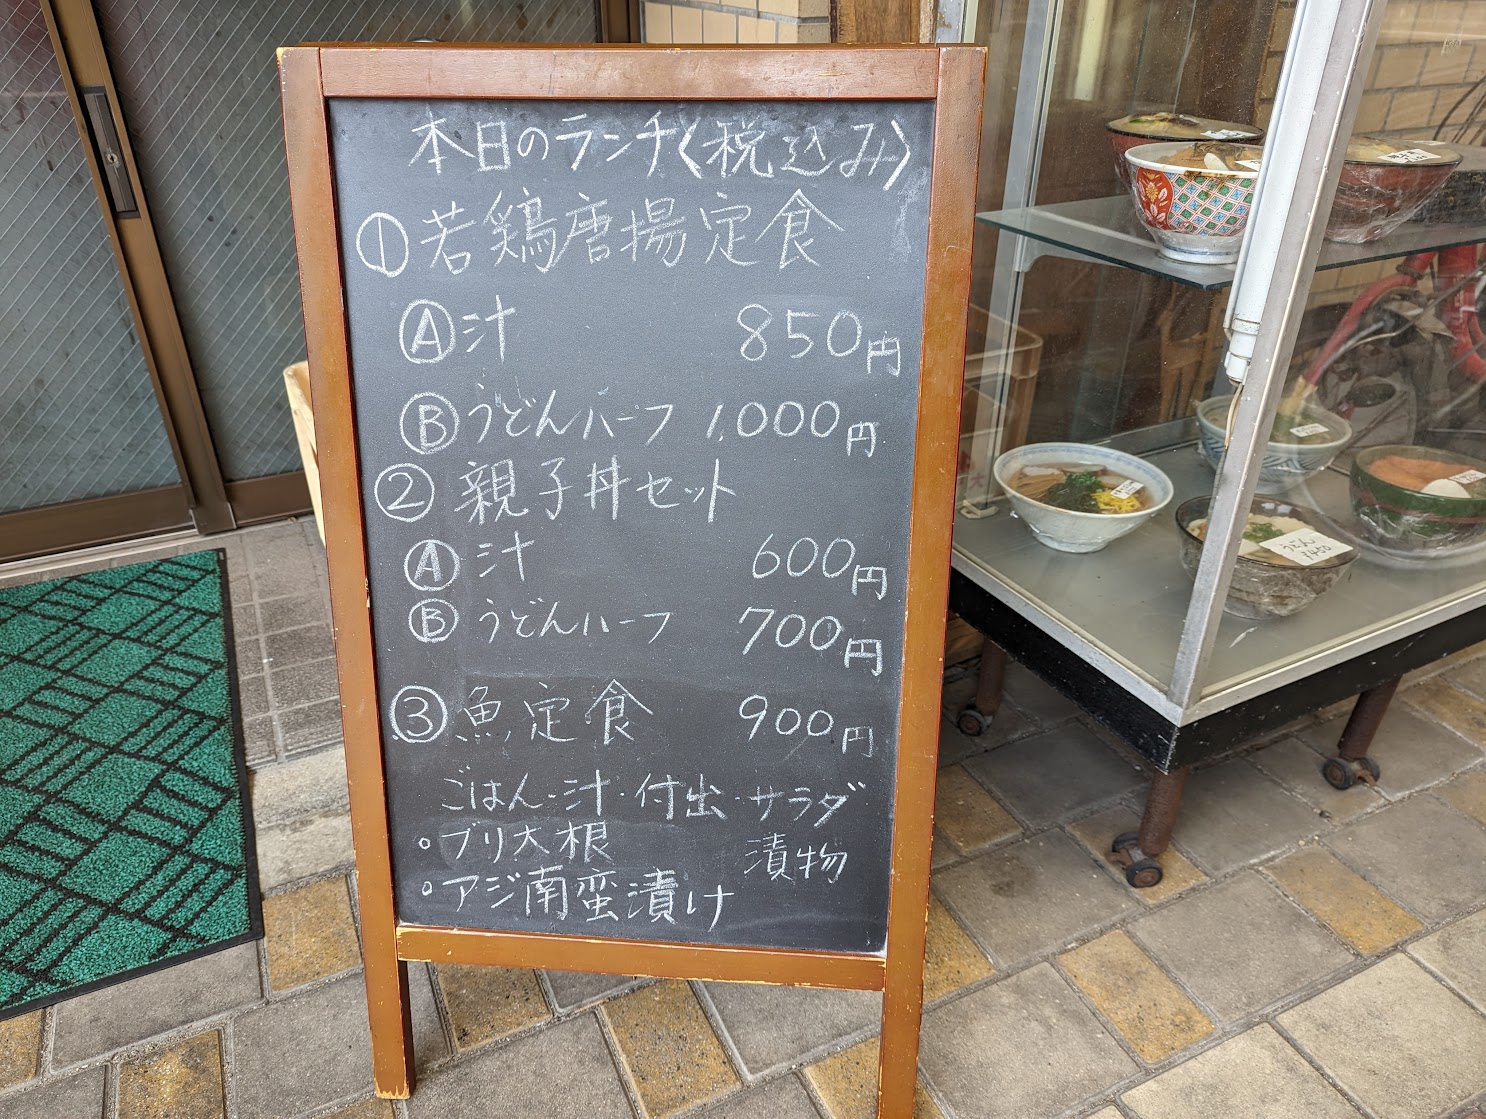 本日のランチ〈税込み〉
①若鶏唐揚定食
Ⓐ汁 850円
Ⓑうどんハーフ 1,000円
②親子丼セット
Ⓐ汁 600円
Ⓑうどんハーフ 700円
③魚定食 900円
ごはん・汁・付出・サラダ
漬物
○ブリ大根
○アジ南蛮漬け
うどん
¥450